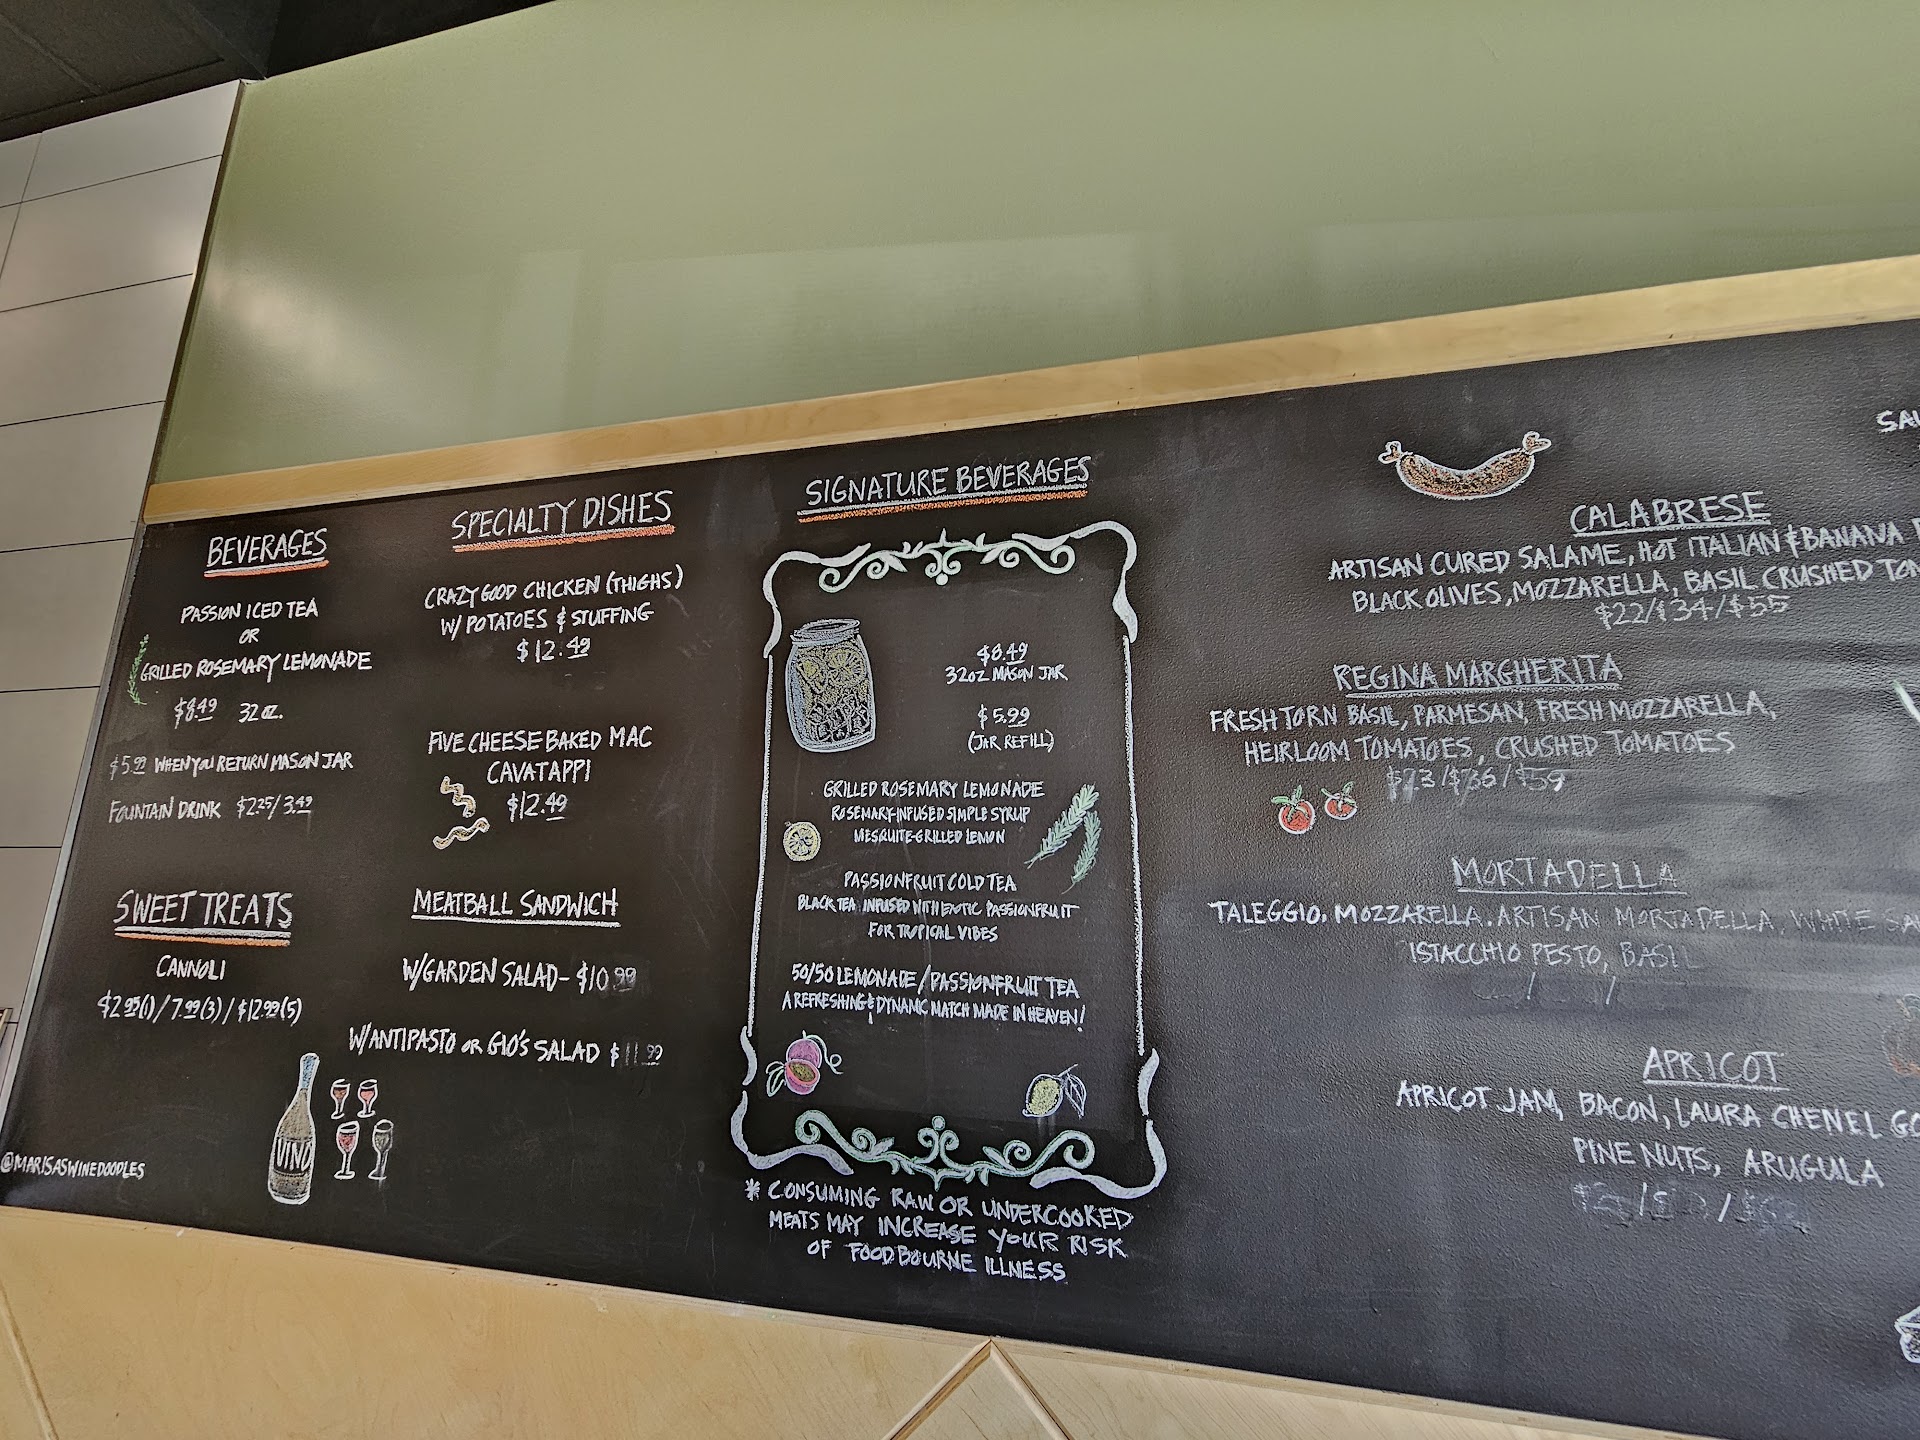 BEVERAGES
PASSION ICED TEA
OR
GRILLED ROSEMARY LEMONADE
$8.49 32 OZ.
$5.99 WHEN YOU RETURN MASON JAR
FOUNTAIN DRINK $2.25/3.49
SWEET TREATS
CANNOLI
$2.95(1)/7.99(3)/$12.99(5)
VINO
@MARISASWINEDOODLES
SPECIALTY DISHES
CRAZY GOOD CHICKEN (THIGHS)
W/ POTATOES & STUFFING
$12.49
FIVE CHEESE BAKED MAC
CAVATAPPI
$12.49
MEATBALL SANDWICH
W/GARDEN SALAD- $10.99
W/ANTIPASTO OR GIO'S SALAD $11.99
SIGNATURE BEVERAGES
$8.49
32OZ MASON JAR
$5.99
(JAR REFILL)
GRILLED ROSEMARY LEMONADE
ROSEMARY-INFUSED SIMPLE SYRUP
MESQUITE-GRILLED LEMON
PASSIONFRUIT COLD TEA
BLACK TEA INFUSED WITH EXOTIC PASSIONFRUIT
FOR TROPICAL VIBES
50/50 LEMONADE/PASSIONFRUIT TEA
A REFRESHING & DYNAMIC MATCH MADE IN HEAVEN!
* CONSUMING RAW OR UNDERCOOKED
MEATS MAY INCREASE YOUR RISK
OF FOODBOURNE ILLNESS
CALABRESE
ARTISAN CURED SALAME, HOT ITALIAN & BANANA
BLACK OLIVES, MOZZARELLA, BASIL CRUSHED
$22/$34/$55
REGINA MARGHERITA
FRESH TORN BASIL, PARMESAN, FRESH MOZZARELLA,
HEIRLOOM TOMATOES, CRUSHED TOMATOES
MORTADELLA
TALEGGIO, MOZZARELLA, ARTISAN MORTADELLA, WHITE
ISTACCHIO PESTO, BASIL
APRICOT
APRICOT JAM, BACON, LAURA CHENEL
PINE NUTS, ARUGULA